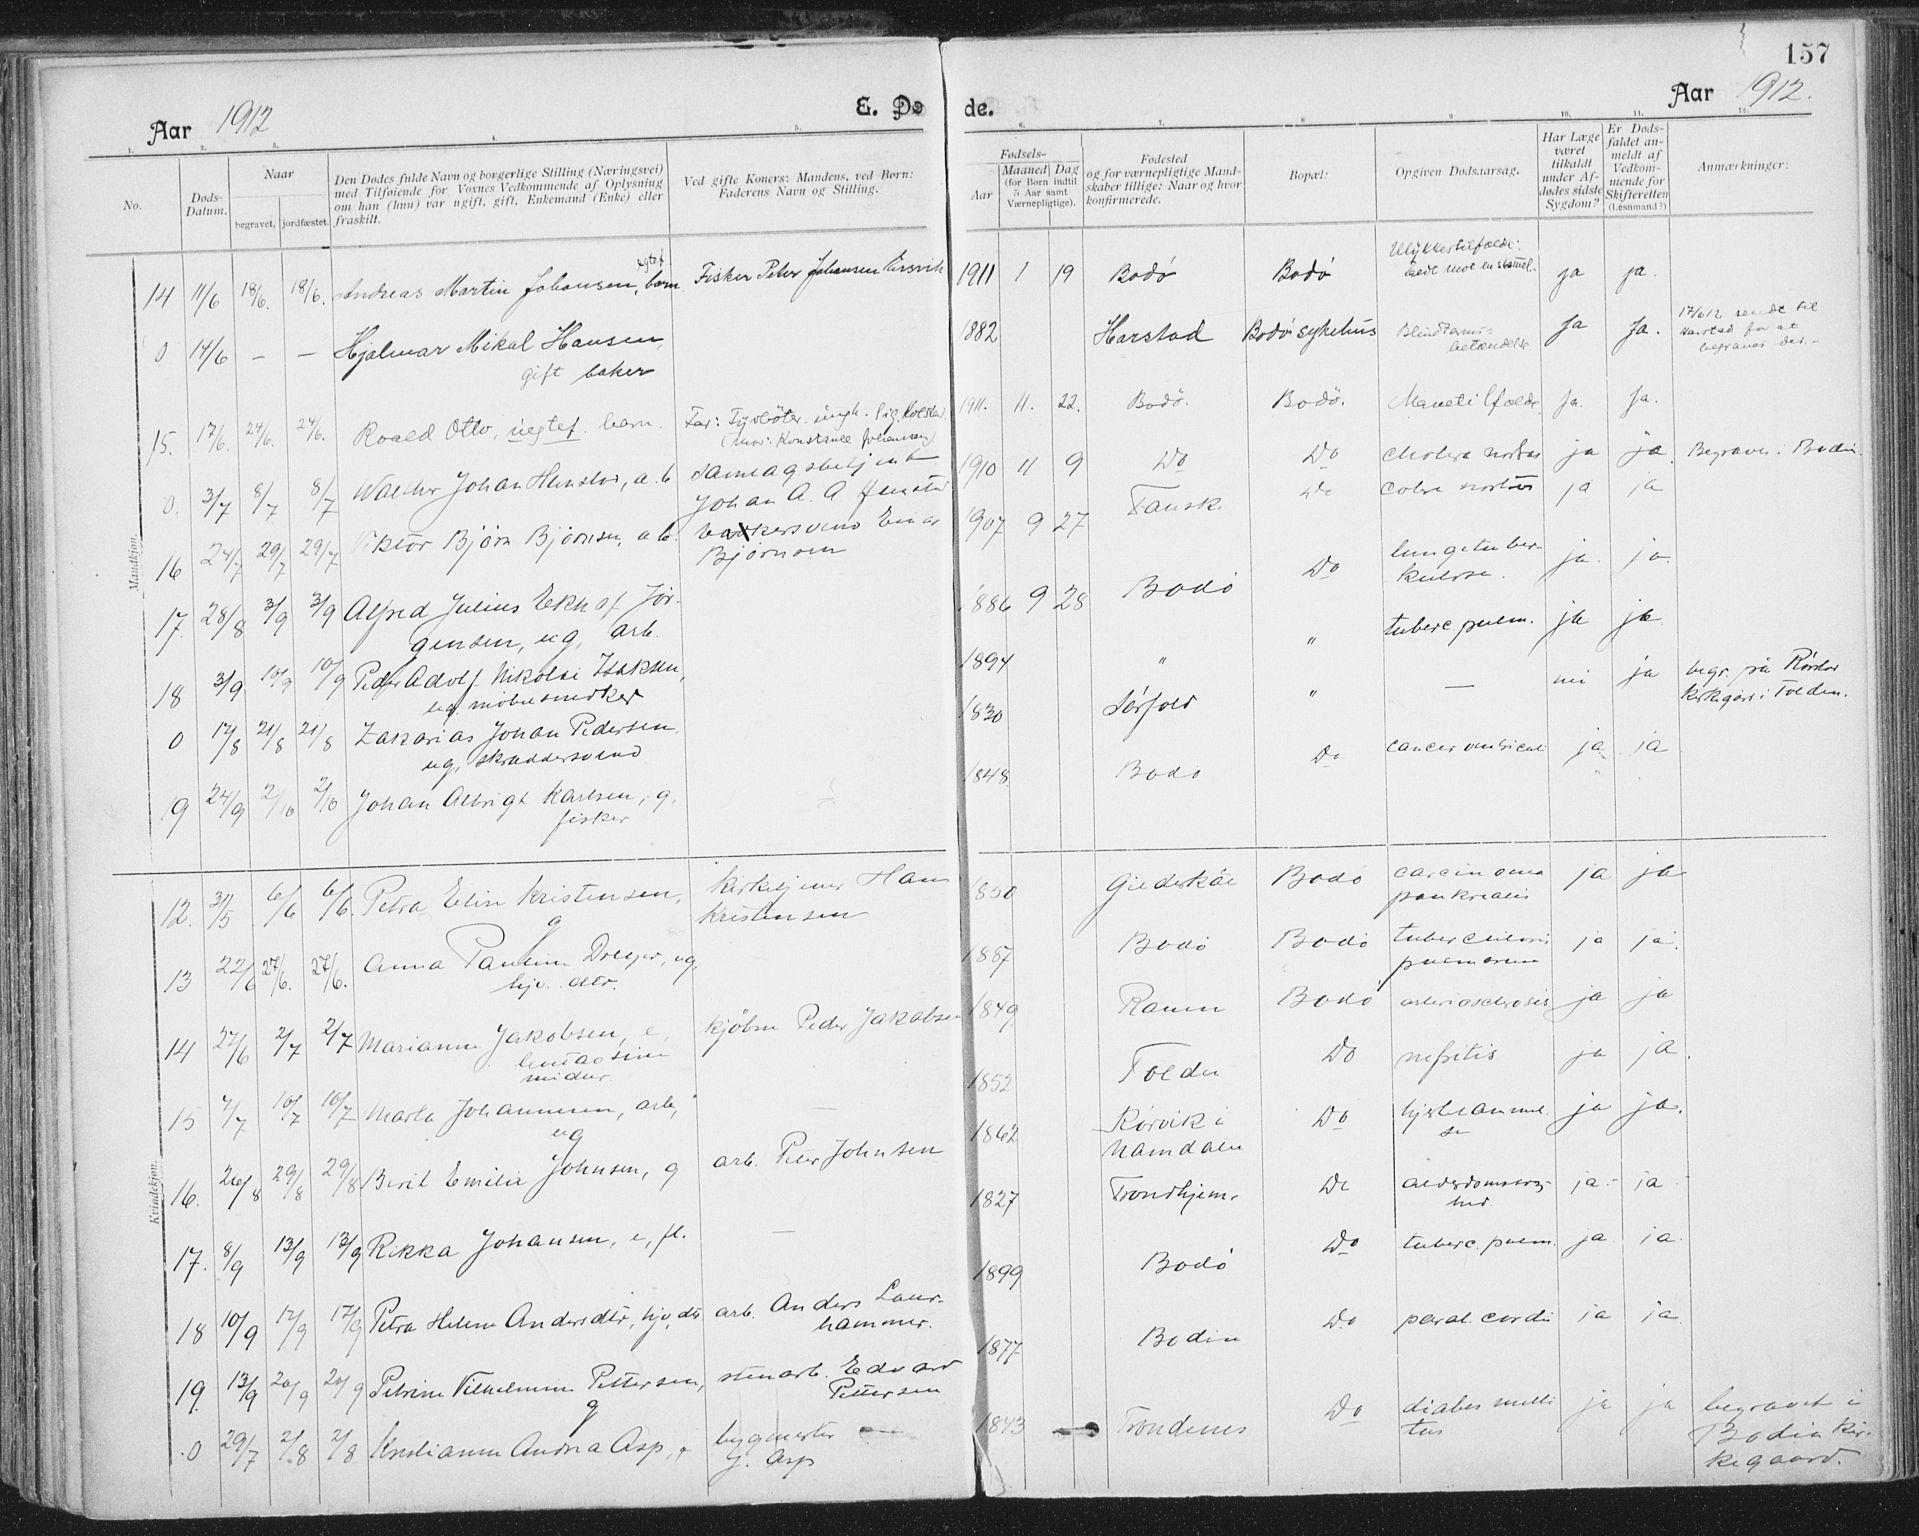 157
Aar 1912
E. Døde.
Aar 1912.
1. 2. 3. 4. 5. 6. 7. 8. 9. 10. 11. 12.
No.
Døds-
Datum.
Naar
begravet. jordfæstet.
Den Dødes fulde Navn og borgerlige Stilling (Næringsvei)
med Tilføiende for Voxnes Vedkommende af Oplysning
om han (hun) var ugift, gift, Enkemand (Enke) eller
fraskilt.
Ved gifte Koners: Mandens, ved Børn:
Faderens Navn og Stilling.
Fødsels-
Aar
Maaned Dag
(for Børn indtil
5 Aar samt
Værnepligtige).
Fødested
og for værnepligtige Mand-
skaber tillige: Naar og hvor
konfirmerede.
Bopæl:
Opgiven Dødsaarsag.
Har Læge
været
tilkaldt
under Af-
dødes sidste
Sygdom?
Er Døds-
faldet an-
meldt af
Vedkom-
mende for
Skifteretten
(Lensmand?)
Anmærkninger:
Mandkjøn.
14 11/6 18/6. 18/6. Andreas Martin Johansen, egtef. barn. Fisker Peter Johansen 1911 1 19 Bodø Bodø Ulykkestilfælde: ja ja.
0 14/6 — — Hjalmar Mikal Hansen, 1882 Harstad Bodø sykehus Blindtarms- Ja Ja. 17/6 12 sendt til
gift baker betændelse. Harstad for at
begraves der.-
15. 17/6. 24/6. 24/6. Roald Otto, uegtef. barn. Far: ungk. Sig. 1911. 11. 22. Bodø. Bodø. Mavetilfælde Ja. Ja.
(Mor: Konstance Johansen)
0. 3/7 8/7 8/7 Johan a. b 1910 11 9 Do Do cholera ja ja. Begraves i Bodin.
Johan A. A
16 24/7 29/7 29/7 Viktor Bjørn Bjørnsen, a. b. Einar 1907 9 27 Fausk. Do ja ja
Bjørnsen
17. 28/8 3/9 3/9 Alfred Julius Ekhof Jør- 1886 9 28 Bodø Do lungetuber- ja. ja.
gensen, ug, arb. kulose.
18 3/9 10/9 10/9 Peder Adolf Nikolai Isaksen, 1894 " " tuberc. pulm. ja ja.
ug. møbelsnekker
0 17/8 21/8 21/8 Zakarias Johan Pedersen. 1830 Sørfold " — nei ja begr. på
ug, skræddersvend kirkegård i Folden.
19 24/9 2/10 2/10 Johan Albrigt Karlsen, g, 1848. Bodø Do cancer ja ja
fisker
Kvindekjøn.
12. 31/5 6/6 6/6. Petra Elin Kristensen, kirketjener Hans 1850 Gildeskål Bodø carcinoma ja ja
g Kristensen pankreatis
13 22/6 27/6. 27/6. Anna Pauline Dreyer, ug, 1887 Bodø Bodø tuberculosis ja ja.
hjv. dtr. pulmorum
14 27/6 2/7 2/7 Marianne Jakobsen, e, kjøbm Peder Jakobsen 1849 Ranen Bodø arteriosclerosis ja ja
midler.
15 4/7 10/7 10/7 Marta Johannesen, arb, — 1852 Folden Do nefritis ja ja.
ug
16. 26/8 29/8 29/8 Berit Emilie Johnsen, g arb. Peter Johnsen 1862 Rørvik i Do ja ja.
Namdalen
17. 8/9 13/9 13/9 Rikka Johansen, e, fl. — 1827 Trondhjem. Do alderdomssvag- ja. ja.
hed.
18 10/9 17/9 17/9 Petra Helene Andersdtr, hjv. dtr arb. Anders Laur- 1899 Bodø Do tuberc. pulm. ja ja.
hammer.
19. 13/9 20/9 20/9 Petrine Vilhelmine Pettersen, stenarb. Edvard 1877 Bodin Do paral. cordis ja ja.
g Pettersen
0 29/7 2/8 2/8 Kristianne Andrea Asp, e bygmester 1843 Trondenes Do diabes melli ja ja begravet i
J. Asp tus Bodin kir-
kegaard.